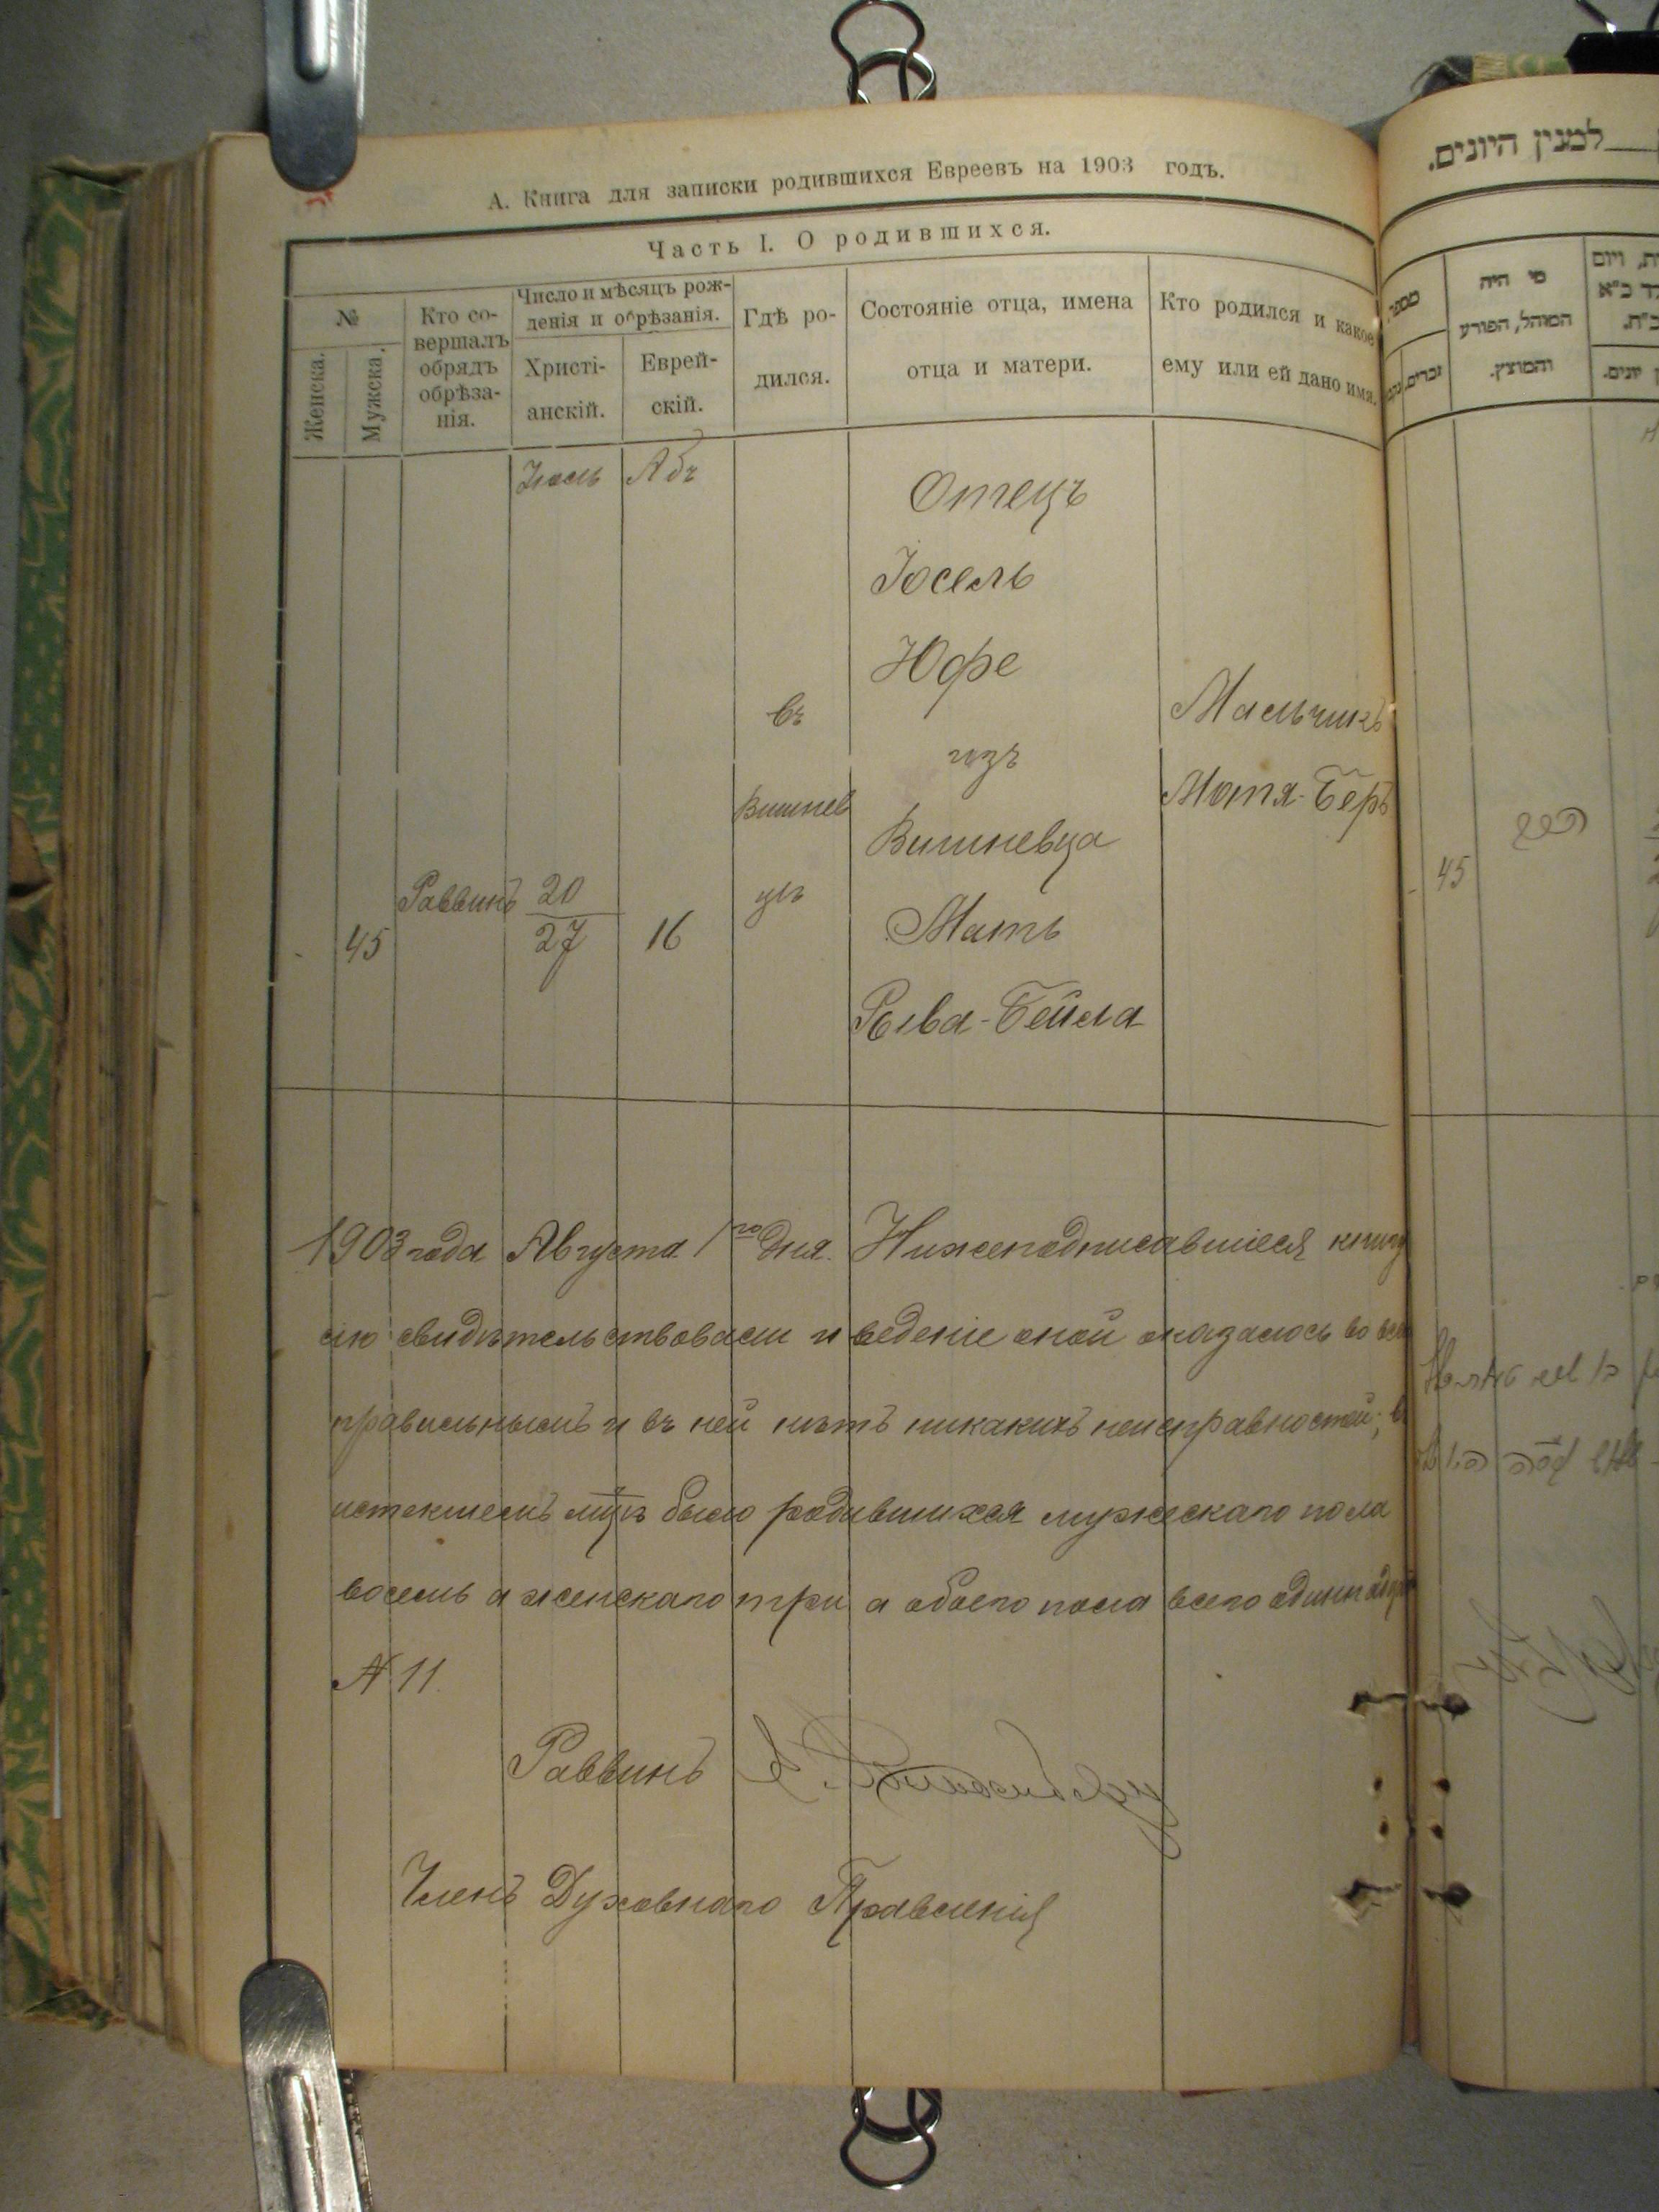 А. Книга для записки родившихся Евреевъ на 1903 годъ.
Часть I. О родившихся.
№
Женска.
Мужска.
Кто со-
вершалъ
обрядъ
обрѣза-
нія.
Число и мѣсяцъ рож-
денія и обрѣзанія.
Христі-
анскій.
Еврей-
скій.
Гдѣ ро-
дился.
Состояніе отца, имена
отца и матери.
Кто родился и какое
ему или ей дано имя.
45
Раввинъ
Іюль
20
27
Абъ
16
въ
Вишнев
цѣ
Отецъ
Іосель
Юфе
изъ
Вишневца
Мать
Бейла
Мальчикъ
Мотя-Беръ
1903 года Августа 1го дня. Нижеподписавшіеся книгу
сію свидѣтельствовали и веденіе оной оказалось во всем
правильнымъ и въ ней нѣтъ никакихъ неисправностей; в
истекшемъ мцѣ было родившихся мужескаго пола
восемь а женскаго три а обоего пола всего одиннадц
№ 11.
Раввинъ
Членъ Духовнаго Правленія
למנין היונים.
מספר
זכרים
מי היה
המוהל, הפורע
והמוצץ.
ויום
יונים.
45